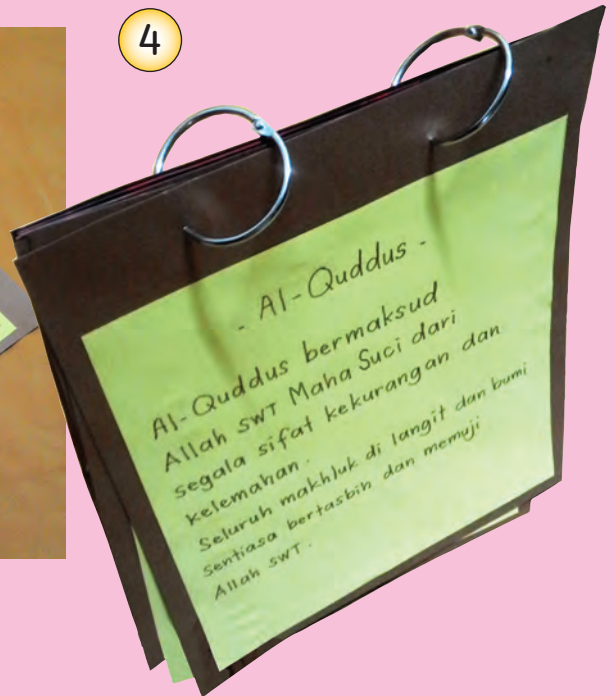 4
- Al-Quddus -
Al-Quddus bermaksud
Allah SWT Maha Suci dari
segala sifat kekurangan dan
kelemahan.
Seluruh makhluk di langit dan bumi
sentiasa bertasbih dan memuji
Allah SWT.